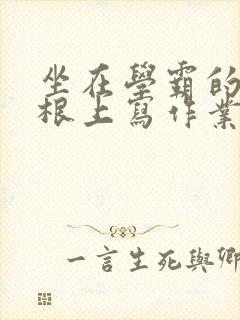 坐在學霸的
根上寫作業
一言生死與卿